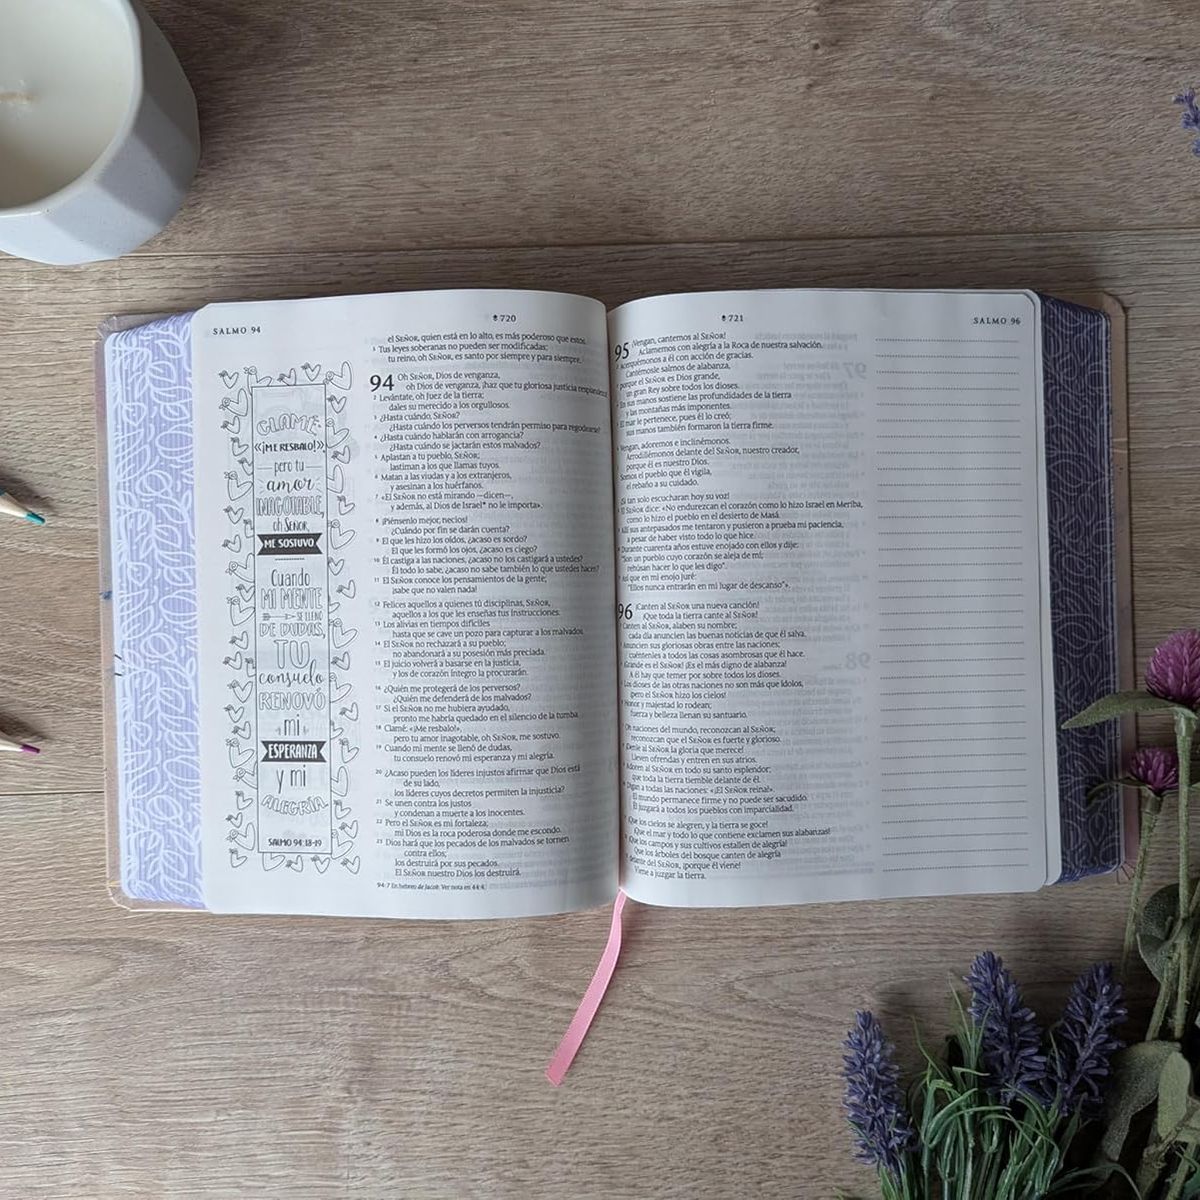 SALMO 94
720
CLAMÉ:
«¡ME RESBALO!»
pero tu
amor
INAGOTABLE,
oh SEÑOR,
ME SOSTUVO.
Cuando
MI MENTE
SE LLENÓ
DE DUDAS,
TU
consuelo
RENOVÓ
mi
ESPERANZA
y mi
ALEGRÍA.
SALMO 94:18-19
el SEÑOR, quien está en lo alto, es más poderoso que estos.
5 Tus leyes soberanas no pueden ser modificadas;
tu reino, oh SEÑOR, es santo por siempre y para siempre.
94 Oh SEÑOR, Dios de venganza,
oh Dios de venganza, ¡haz que tu gloriosa justicia resplandezca!
2 Levántate, oh Juez de la tierra;
dales su merecido a los orgullosos.
3 ¿Hasta cuándo, SEÑOR?
¿Hasta cuándo los perversos tendrán permiso para regodearse?
4 ¿Hasta cuándo hablarán con arrogancia?
¿Hasta cuándo se jactarán estos malvados?
5 Aplastan a tu pueblo, SEÑOR;
lastiman a los que llamas tuyos.
6 Matan a las viudas y a los extranjeros,
y asesinan a los huérfanos.
7 «El SEÑOR no está mirando —dicen—,
y además, al Dios de Israel* no le importa».
8 ¡Piénsenlo mejor, necios!
¿Cuándo por fin se darán cuenta?
9 El que les hizo los oídos, ¿acaso es sordo?
El que les formó los ojos, ¿acaso es ciego?
10 Él castiga a las naciones, ¿acaso no los castigará a ustedes?
Él todo lo sabe, ¿acaso no sabe también lo que ustedes hacen?
11 El SEÑOR conoce los pensamientos de la gente;
¡sabe que no valen nada!
12 Felices aquellos a quienes tú disciplinas, SEÑOR,
aquellos a los que les enseñas tus instrucciones.
13 Los alivias en tiempos difíciles
hasta que se cave un pozo para capturar a los malvados.
14 El SEÑOR no rechazará a su pueblo;
no abandonará a su posesión más preciada.
15 El juicio volverá a basarse en la justicia,
y los de corazón íntegro la procurarán.
16 ¿Quién me protegerá de los perversos?
¿Quién me defenderá de los malvados?
17 Si el SEÑOR no me hubiera ayudado,
pronto me habría quedado en el silencio de la tumba.
18 Clamé: «¡Me resbalo!»,
pero tu amor inagotable, oh SEÑOR, me sostuvo.
19 Cuando mi mente se llenó de dudas,
tu consuelo renovó mi esperanza y mi alegría.
20 ¿Acaso pueden los líderes injustos afirmar que Dios está
de su lado,
los líderes cuyos decretos permiten la injusticia?
21 Se unen contra los justos
y condenan a muerte a los inocentes.
22 Pero el SEÑOR es mi fortaleza;
mi Dios es la roca poderosa donde me escondo.
23 Dios hará que los pecados de los malvados se tornen
contra ellos;
los destruirá por sus pecados.
El SEÑOR nuestro Dios los destruirá.
94:7 En hebreo de Jacob. Ver nota en 44:4.
721
SALMO 96
95 ¡Vengan, cantemos al SEÑOR!
Aclamemos con alegría a la Roca de nuestra salvación.
Acerquémonos a él con acción de gracias.
Cantémosle salmos de alabanza,
porque el SEÑOR es Dios grande,
un gran Rey sobre todos los dioses.
En sus manos sostiene las profundidades de la tierra
y las montañas más imponentes.
El mar le pertenece, pues él lo creó;
sus manos también formaron la tierra firme.
Vengan, adoremos e inclinémonos.
Arrodillémonos delante del SEÑOR, nuestro creador,
porque él es nuestro Dios.
Somos el pueblo que él vigila,
el rebaño a su cuidado.
¡Si tan solo escucharan hoy su voz!
El SEÑOR dice: «No endurezcan el corazón como lo hizo Israel en Meriba,
como lo hizo el pueblo en el desierto de Masá.
Allí sus antepasados me tentaron y pusieron a prueba mi paciencia,
a pesar de haber visto todo lo que hice.
Durante cuarenta años estuve enojado con ellos y dije:
"Son un pueblo cuyo corazón se aleja de mí;
rehúsan hacer lo que les digo".
Así que en mi enojo juré:
"Ellos nunca entrarán en mi lugar de descanso"».
96 ¡Canten al SEÑOR una nueva canción!
¡Que toda la tierra cante al SEÑOR!
Canten al SEÑOR, alaben su nombre;
cada día anuncien las buenas noticias de que él salva.
Anuncien sus gloriosas obras entre las naciones;
cuéntenles a todos las cosas asombrosas que él hace.
¡Grande es el SEÑOR! ¡Es el más digno de alabanza!
A él hay que temer por sobre todos los dioses.
Los dioses de las otras naciones no son más que ídolos,
¡pero el SEÑOR hizo los cielos!
Honor y majestad lo rodean;
fuerza y belleza llenan su santuario.
Oh naciones del mundo, reconozcan al SEÑOR;
reconozcan que el SEÑOR es fuerte y glorioso.
¡Denle al SEÑOR la gloria que merece!
Lleven ofrendas y entren en sus atrios.
Adoren al SEÑOR en todo su santo esplendor;
que toda la tierra tiemble delante de él.
Digan a todas las naciones: «¡El SEÑOR reina!».
El mundo permanece firme y no puede ser sacudido.
Él juzgará a todos los pueblos con imparcialidad.
¡Que los cielos se alegren, y la tierra se goce!
¡Que el mar y todo lo que contiene exclamen sus alabanzas!
¡Que los campos y sus cultivos estallen de alegría!
Que los árboles del bosque canten de alegría
delante del SEÑOR, porque él viene!
Viene a juzgar la tierra.